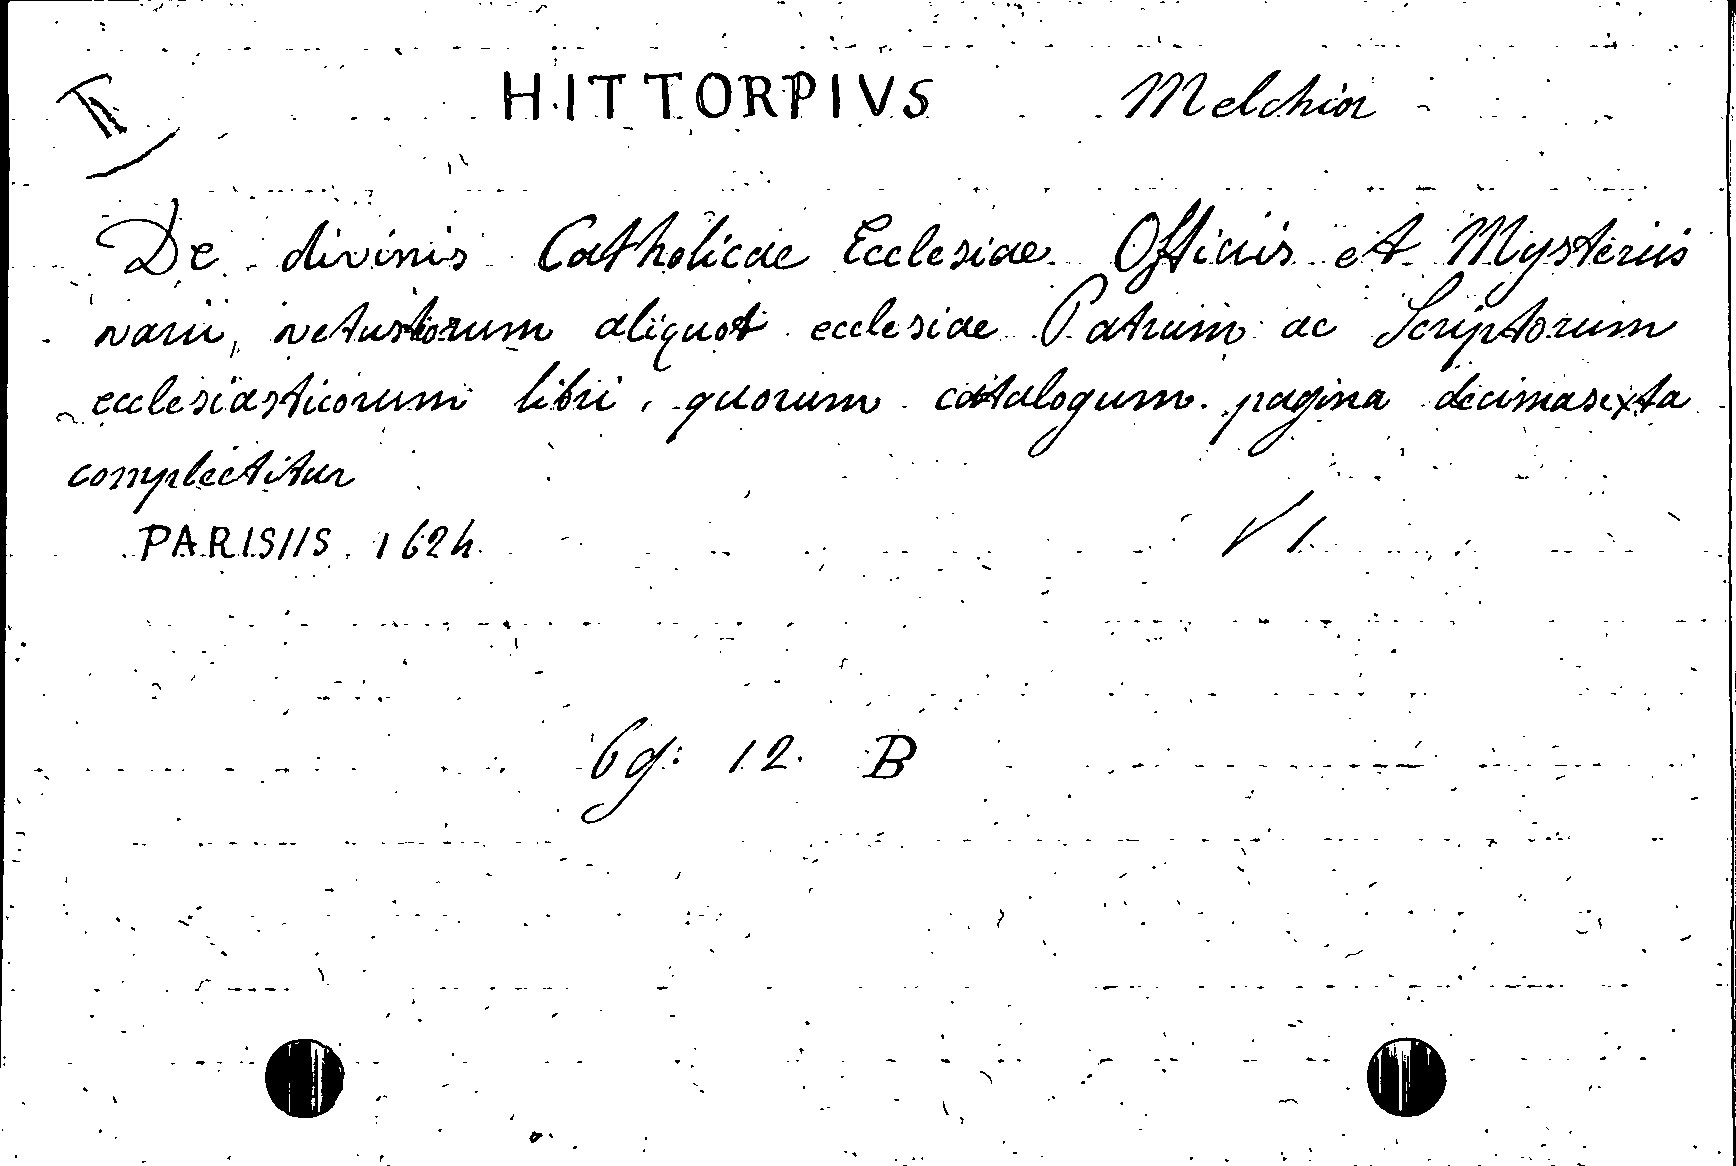 HITTORPIVS Melchior
De divinis Catholicae Ecclesiae Officiis et Mysteriis
varii, vetustorum aliquot ecclesiae Patrum ac Scriptorum
ecclesiasticorum libri, quorum catalogum pagina decimasexta
complectitur
PARISIIS 1624
V 1
6g: 12. B